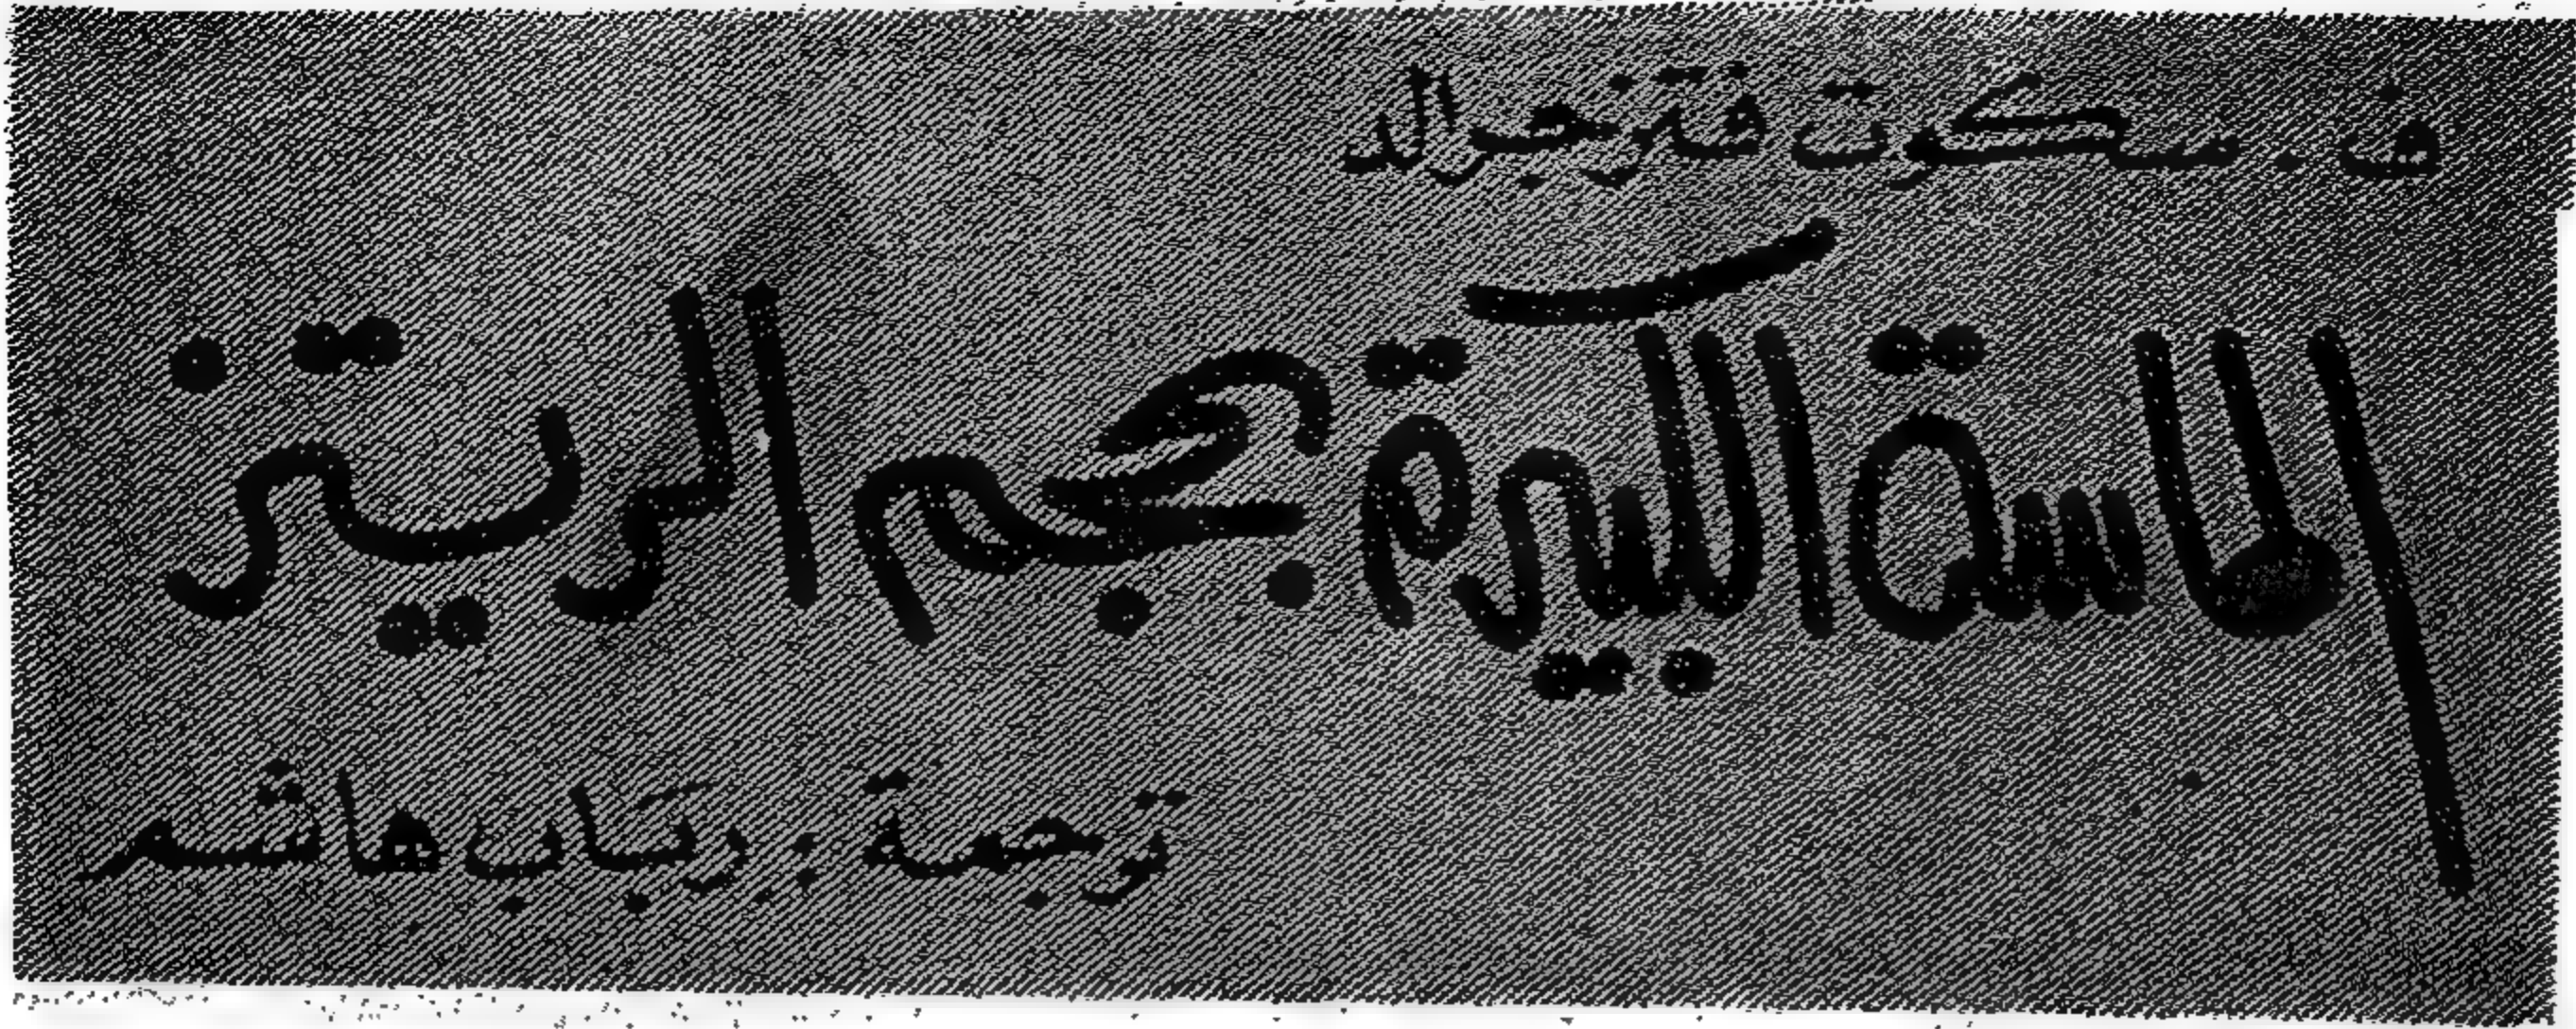 ف. سكوت فتزجرالد
الماسة الكبيرة بحجم الريتز
ترجمة : رباب هاشم